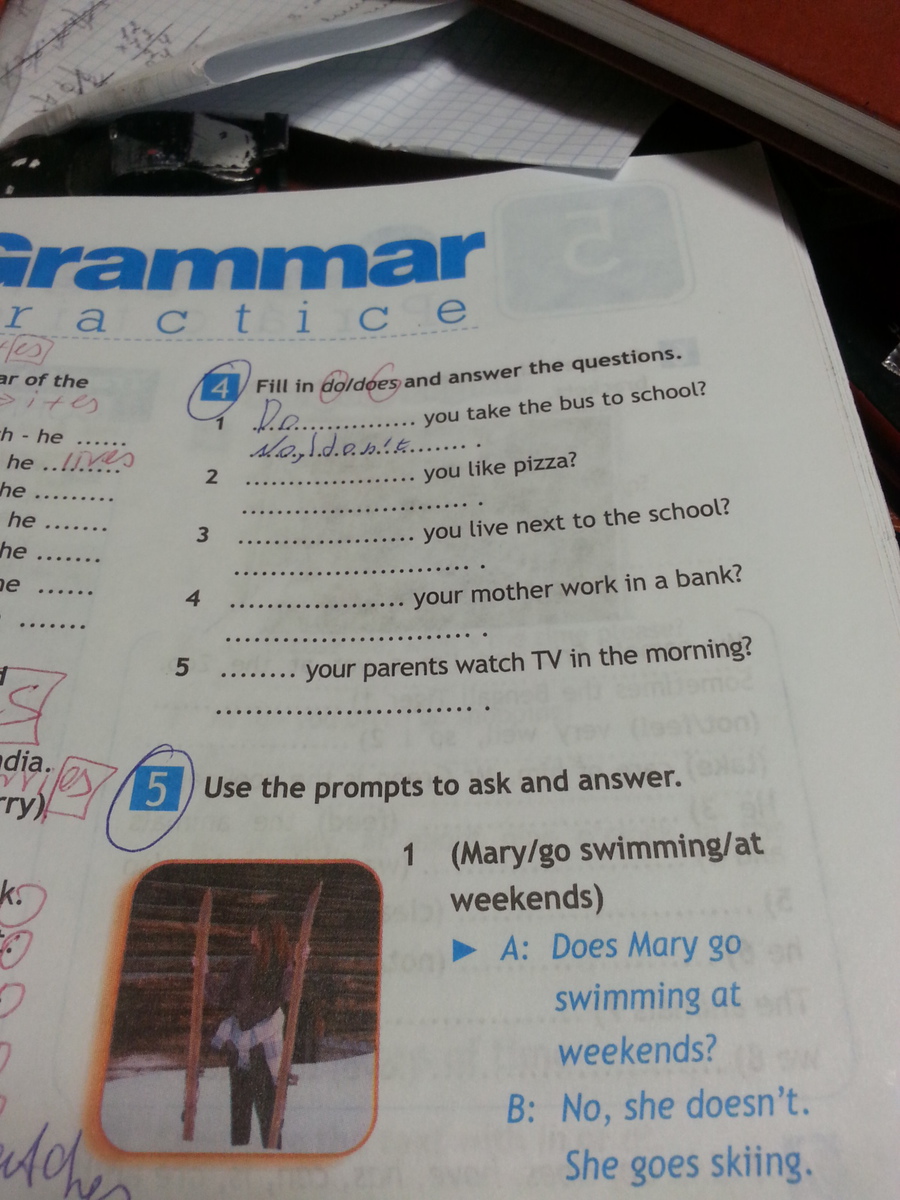 Grammar
ractice
es
ar of the
ites
th - he ......
he .. lives
he .........
he .......
he .......
he ......
.......
4 Fill in do/does and answer the questions.
1 Do ............... you take the bus to school?
No, I don't ....... .
2 .................... you like pizza?
........................... .
3 .................... you live next to the school?
........................... .
4 .................... your mother work in a bank?
........................... .
5 ........ your parents watch TV in the morning?
........................... .
S
dia.
es
rry)
k.
5 Use the prompts to ask and answer.
1 (Mary/go swimming/at
weekends)
▶ A: Does Mary go
swimming at
weekends?
B: No, she doesn't.
She goes skiing.